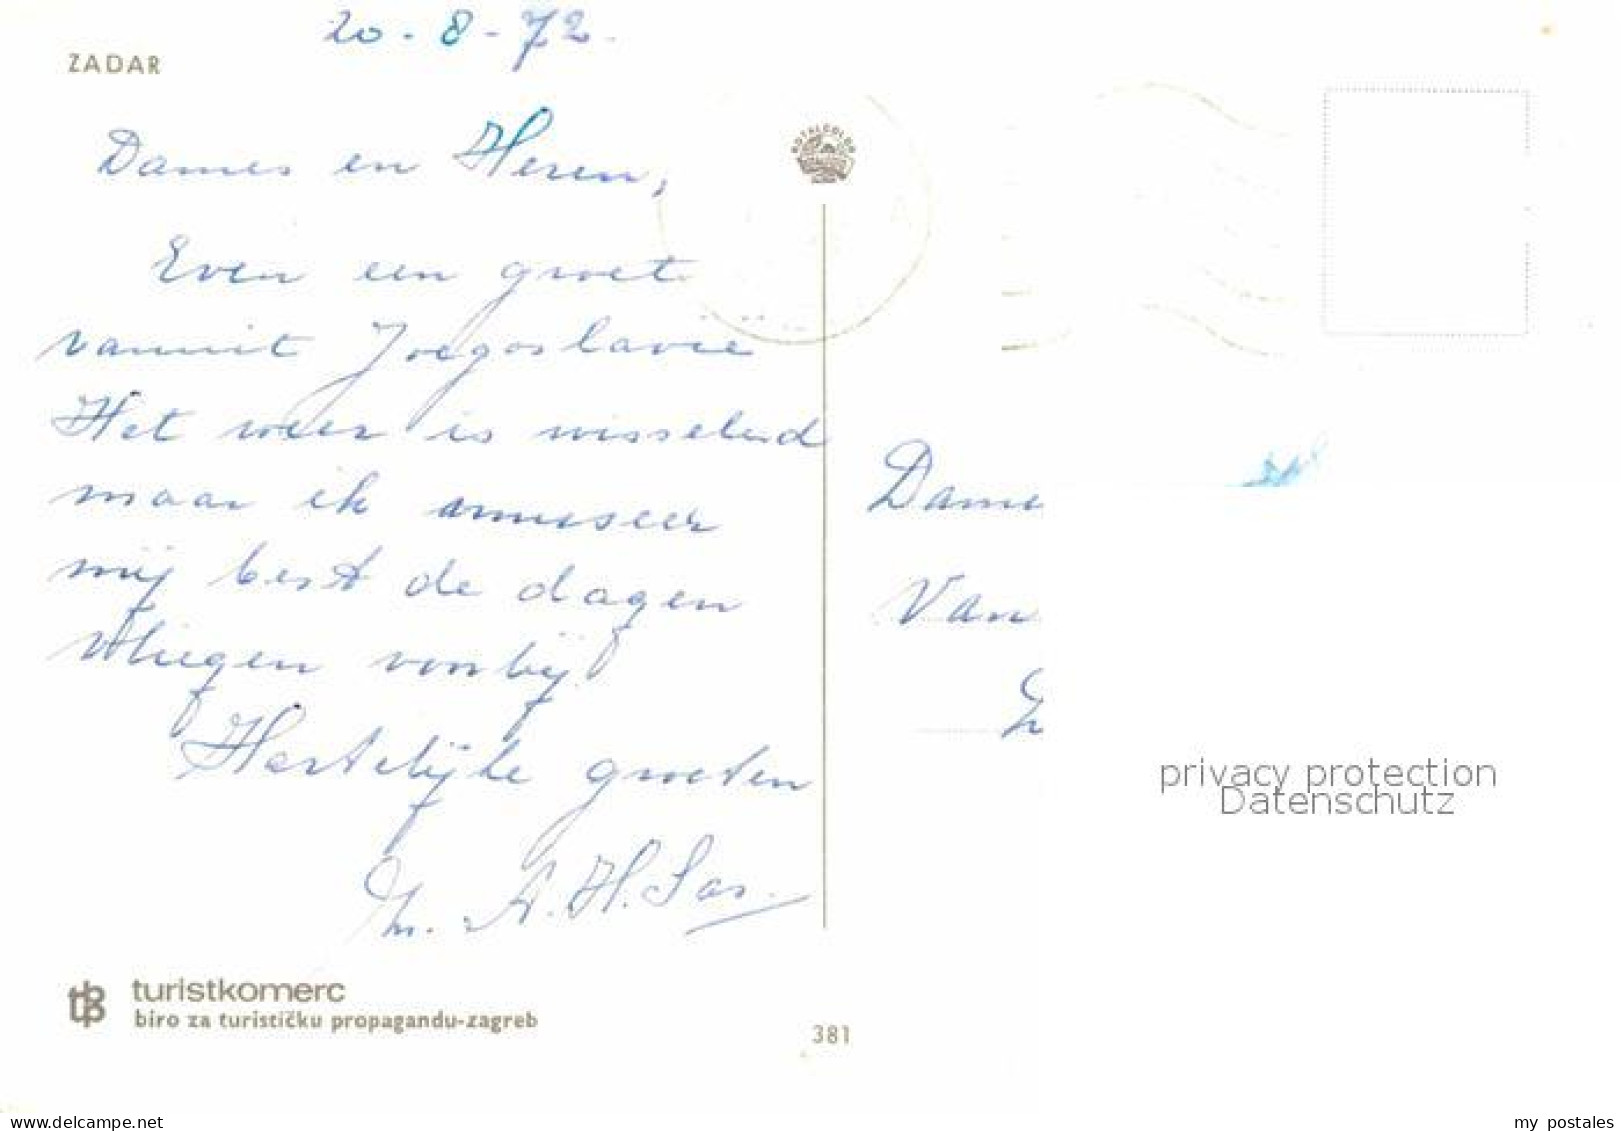 20-8-72.
ZADAR
Dames en Heren,
Even een groet
vanuit Joegoslavië
Het weer is wisselend
maar ik amuseer
mij best de dagen
vliegen voorbij.
Hartelijke groeten
A.H. Sas.
ROTALCOLOR
Dame
Van
privacy protection
Datenschutz
turistkomerc
biro za turističku propagandu-zagreb
381
www.delcampe.net
my_postales